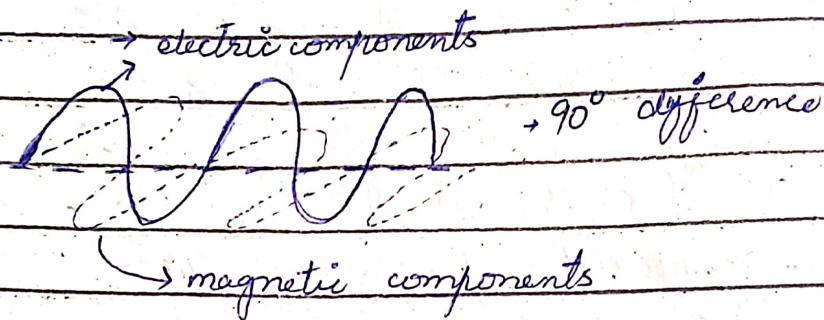 → electric components
→ 90° difference
→ magnetic components.